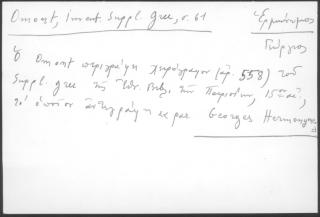 Omont, invent. Suppl. Grec, σ. 61
Ἑρμώνυμος
Γεώργιος
Ὁ Omont περιγράφει χειρόγραφον (ἀρ. 558) τοῦ
Suppl. grec τῆς Ἐθν. Βιβλ. τῶν Παρισίων, 15ου αἰ.,
τὸ ὁποῖον ἀντεγράφη Georges Hermonyme